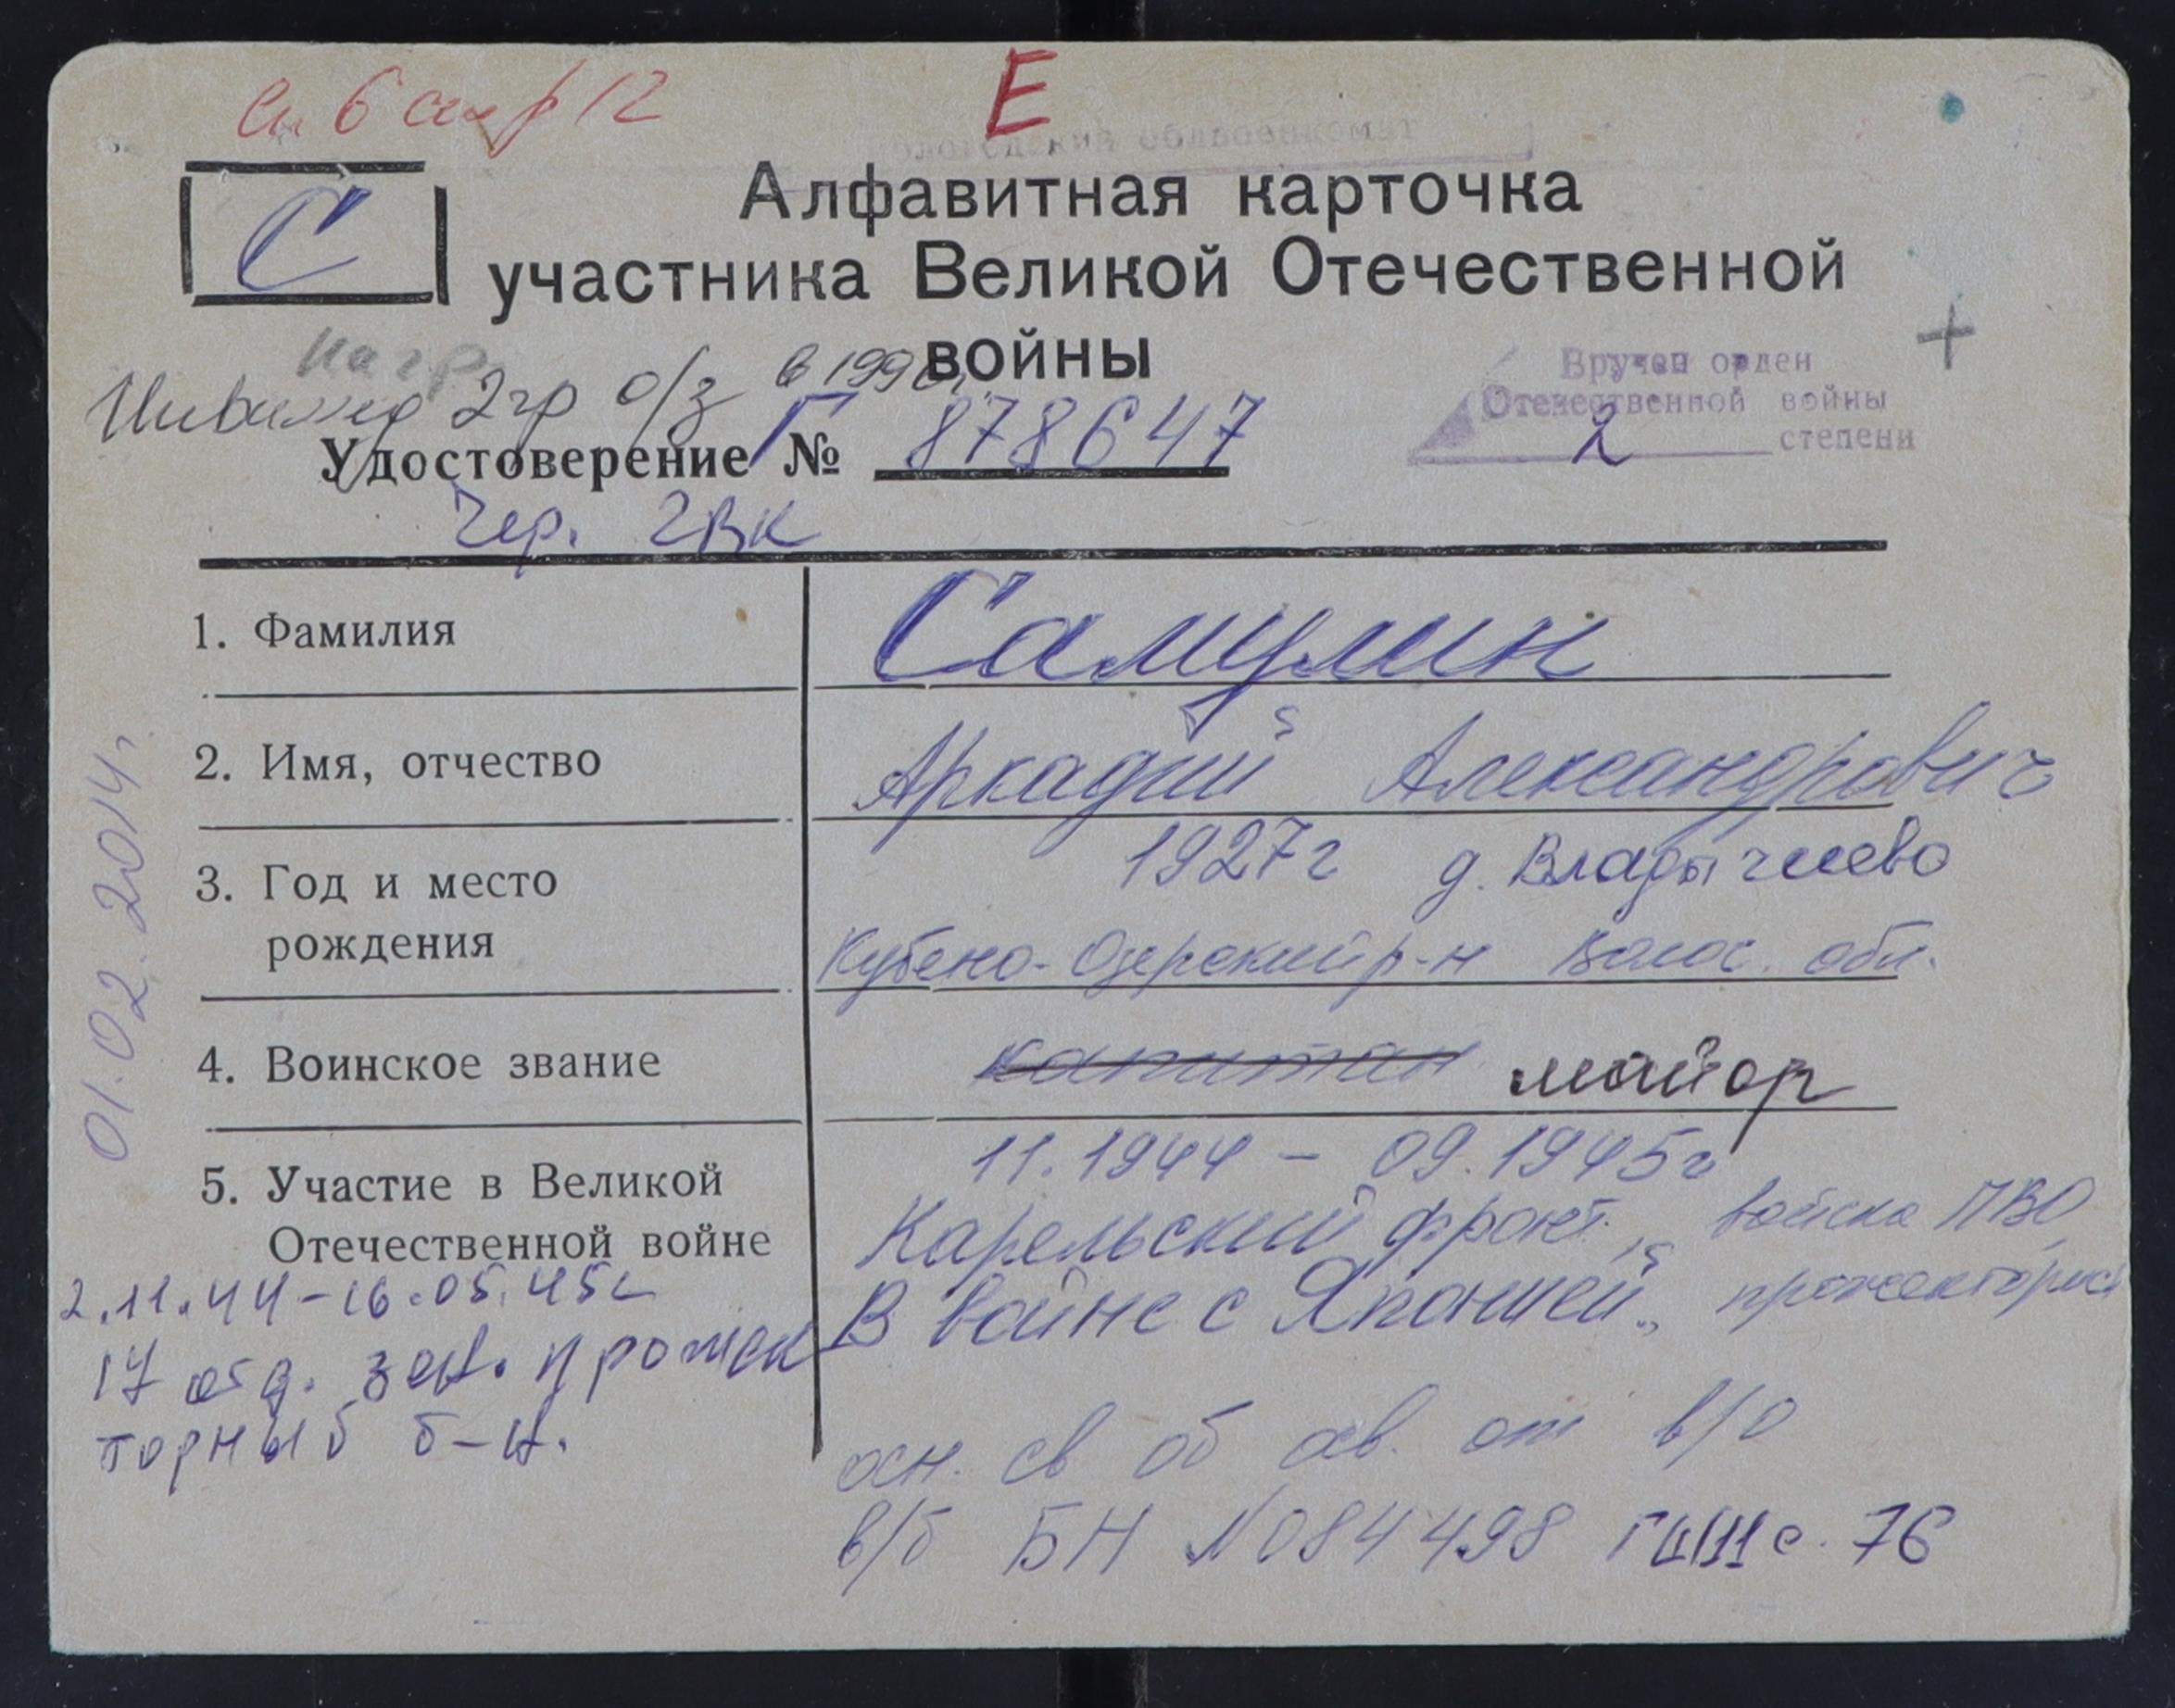 Сп 6 стр 12
Е
Вологодский облвоенкомат
С
Алфавитная карточка
участника Великой Отечественной
войны
нагр
Инвалид 2гр о/з в 199
Вручен орден
Отечественной войны
2 степени
+
Удостоверение Г № 878647
Чер. ГВК
1. Фамилия Самулин
2. Имя, отчество Аркадий Александрович
3. Год и место 1927г д. Владычнево
рождения Кубено-Озерский р-н Волог. обл.
4. Воинское звание капитан майор
11.1944 - 09.1945г
5. Участие в Великой Карельский фронт, войска ПВО,
Отечественной войне В войне с Японией, прожекторист
2.11.44-16.05.45г
17 отд. зен. прожек
торный б-н.
осн. св об осв. от в/о
в/б БН №084498 с. 76
01.02.2014г.